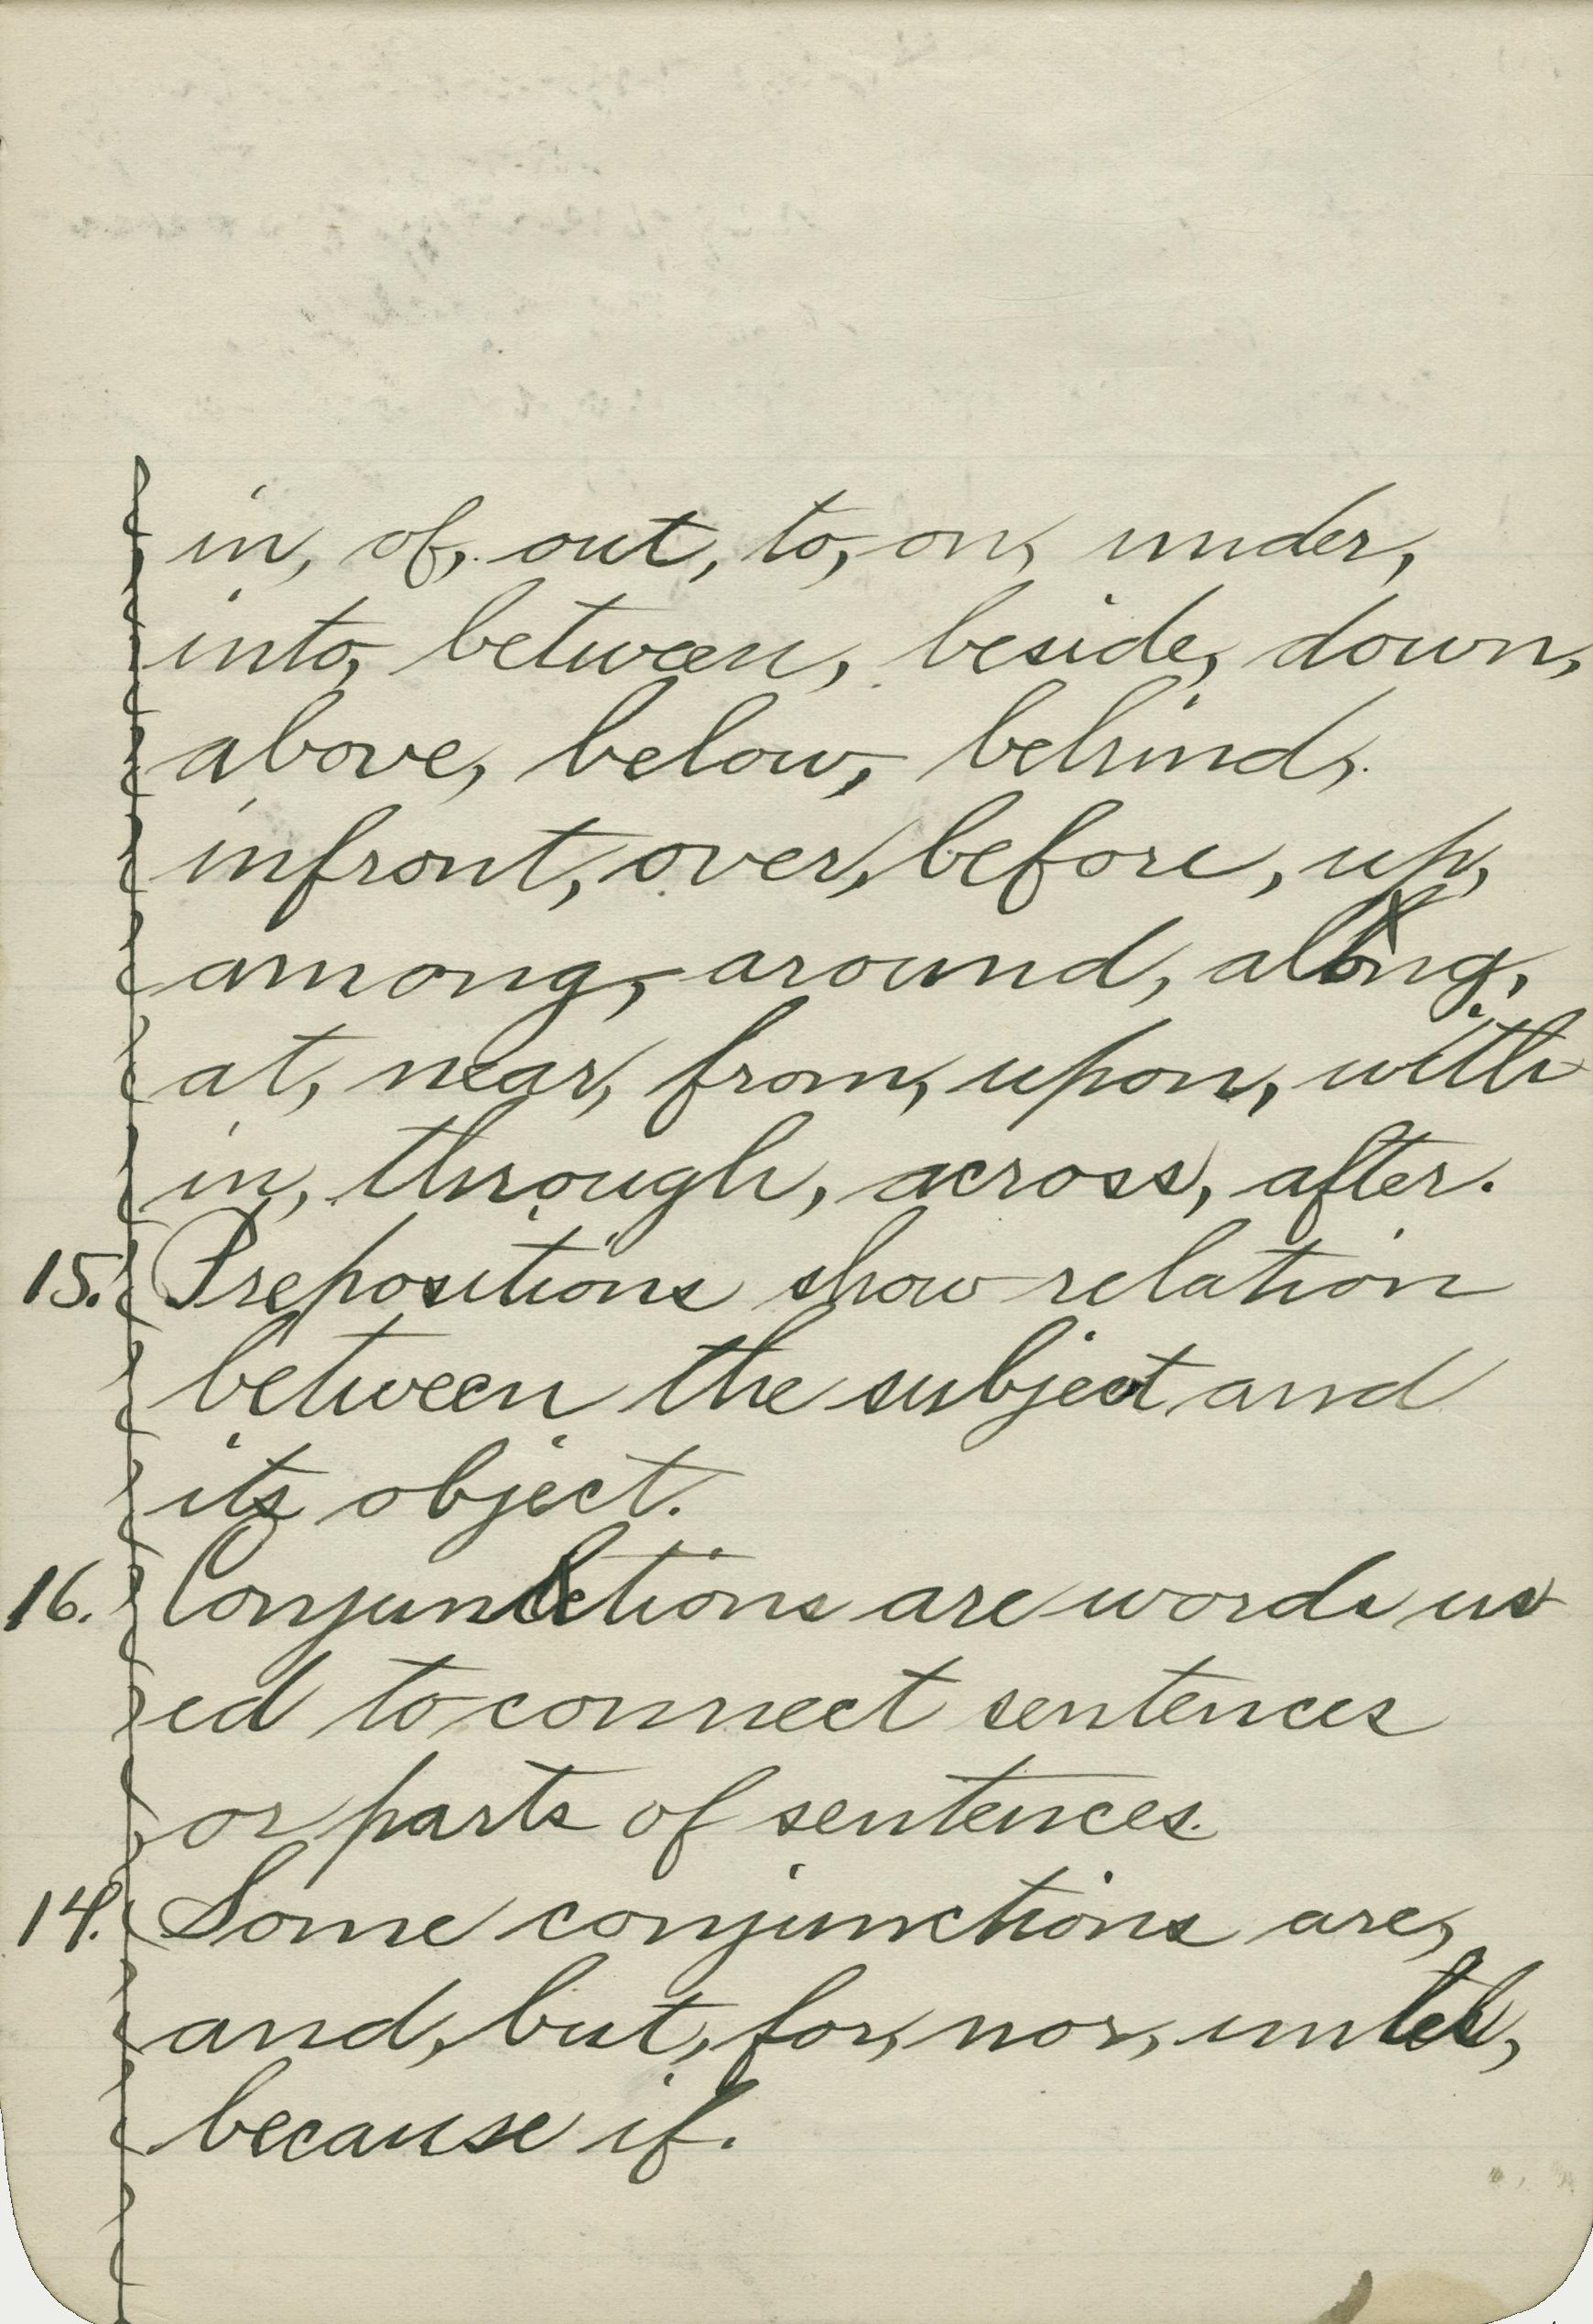 in, of, out, to, on, under,
into, between, beside, down,
above, below, behind,
infront, over, before, up,
among, around, along,
at, near, from, upon, with
in, through, across, after.
15. Prepositions show relation
between the subject and
its object.
16. Conjunctions are words us
ed to connect sentences
or parts of sentences.
14. Some conjunctions are,
and, but, for, nor, until,
because if.